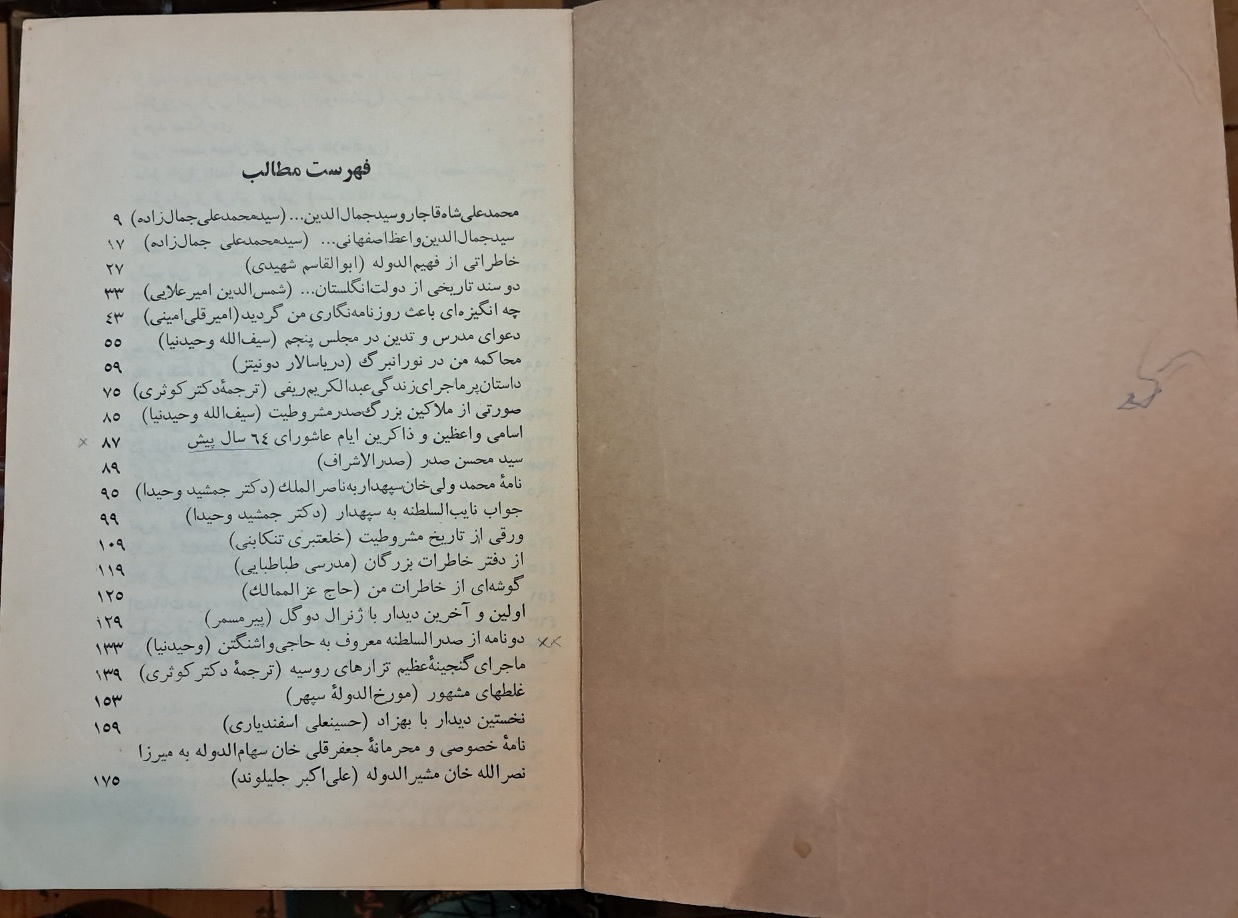 فهرست مطالب
محمدعلی‌شاه‌قاجار و سیدجمال‌الدین... (سیدمحمدعلی‌جمال‌زاده) ۹
سیدجمال‌الدین‌واعظ‌اصفهانی... (سیدمحمدعلی جمال‌زاده) ۱۷
خاطراتی از فهیم‌الدوله (ابوالقاسم شهیدی) ۲۷
دو سند تاریخی از دولت‌انگلستان... (شمس‌الدین امیرعلایی) ۳۳
چه انگیزه‌ای باعث روزنامه‌نگاری من گردید (امیرقلی‌امینی) ۴۳
دعوای مدرس و تدین در مجلس پنجم (سیف‌الله وحیدنیا) ۵۵
محاکمه من در نورانبرگ (دریاسالار دونیتز) ۵۹
داستان‌پرماجرای‌زندگی‌عبدالکریم‌ریفی (ترجمهٔ‌دکترکوثری) ۷۵
صورتی از ملاکین بزرگ‌صدرمشروطیت (سیف‌الله وحیدنیا) ۸۵
اسامی واعظین و ذاکرین ایام عاشورای ۶۴ سال پیش ۸۷ ×
سید محسن صدر (صدرالاشراف) ۸۹
نامهٔ محمد ولی‌خان‌سپهدار به‌ناصرالملك (دکتر جمشید وحیدا) ۹۵
جواب نایب‌السلطنه به سپهدار (دکتر جمشید وحیدا) ۹۹
ورقی از تاریخ مشروطیت (خلعتبری تنکابنی) ۱۰۹
از دفتر خاطرات بزرگان (مدرسی طباطبایی) ۱۱۹
گوشه‌ای از خاطرات من (حاج عزالممالك) ۱۲۵
اولین و آخرین دیدار با ژنرال دوگل (پیرمسمر) ۱۲۹
×× دونامه از صدرالسلطنه معروف به حاجی‌واشنگتن (وحیدنیا) ۱۳۳
ماجرای‌گنجینهٔ‌عظیم تزارهای روسیه (ترجمهٔ دکترکوثری) ۱۳۹
غلطهای مشهور (مورخ‌الدولهٔ سپهر) ۱۵۳
نخستین دیدار با بهزاد (حسینعلی اسفندیاری) ۱۵۹
نامهٔ خصوصی و محرمانهٔ جعفرقلی خان سهام‌الدوله به میرزا
نصرالله خان مشیرالدوله (علی‌اکبر جلیلوند) ۱۷۵